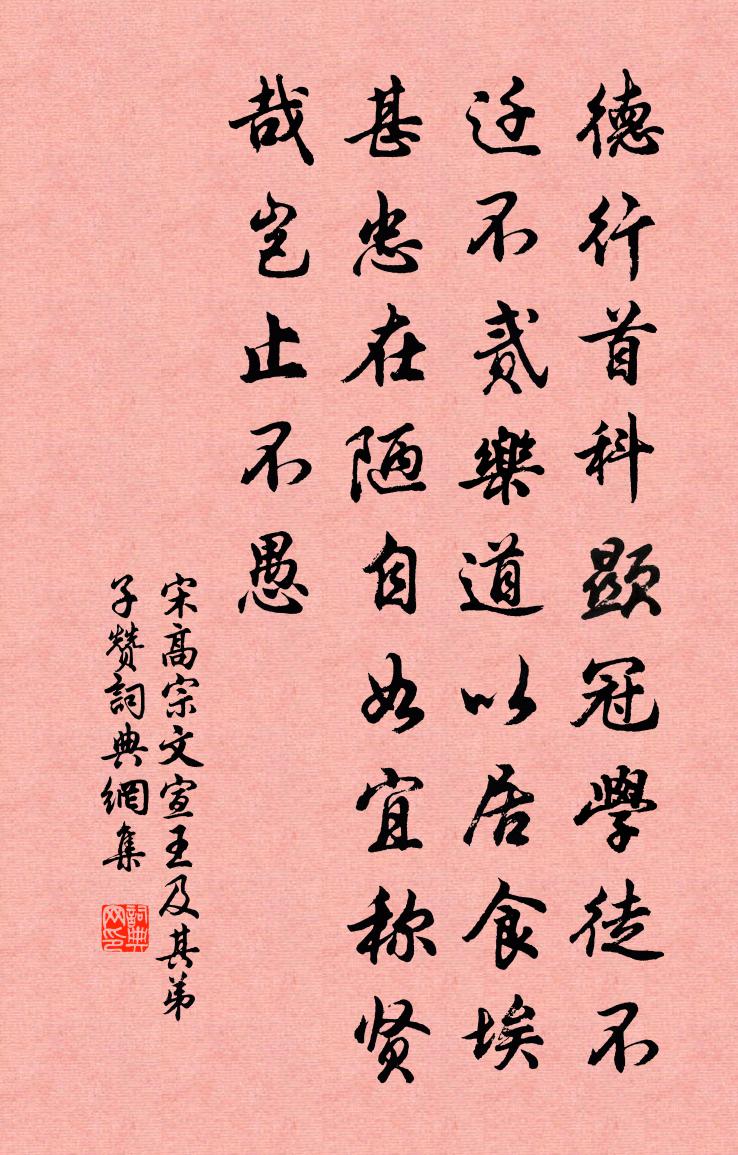 德行首科顯冠學徒不
迁不貳樂道以居食埃
甚忠在陋自如宜称贤
哉岂止不愚
宋高宗文宣王及其弟
子赞詞典網集
詞典网印